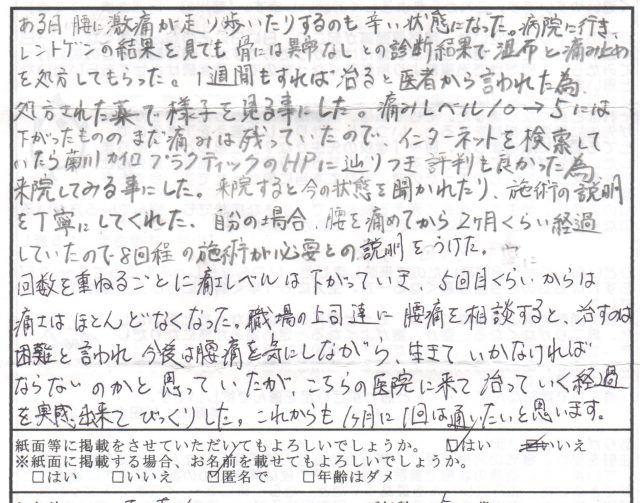 ある日腰に激痛が走り歩いたりするのも辛い状態になった。病院に行き、
レントゲンの結果を見ても骨には異常なしとの診断結果で湿布と痛み止め
を処方してもらった。1週間もすれば治ると医者から言われた為
処方された薬で様子を見る事にした。痛みレベル10→5には
下がったもののまだ痛みは残っていたので、インターネットを検索して
いたら菊川カイロプラクティックのHPに辿りつき評判も良かった為
来院してみる事にした。来院すると今の状態を聞かれたり、施術の説明
を丁寧にしてくれた。自分の場合、腰を痛めてから2ヶ月くらい経過
していたので8回程の施術が必要との説明をうけた。
回数を重ねるごとに痛レベルは下がっていき、5回目くらいからは
痛はほとんどなくなった。職場の上司達に腰痛を相談すると、治すのは
困難と言われ今後は腰痛を気にしながら、生きていかなければ
ならないのかと思っていたが、こちらの医院に来て治っていく経過
を実感出来てびっくりした。これからも1ヶ月に1回は通いたいと思います。
紙面等に掲載をさせていただいてもよろしいでしょうか。 □はい ☑いいえ
※紙面に掲載する場合、お名前を載せてもよろしいでしょうか。
□はい □いいえ ☑匿名で □年齢はダメ